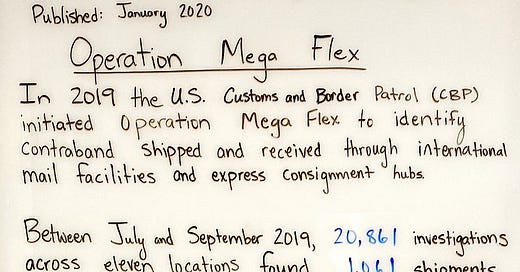 Published: January 2020
Operation Mega Flex
In 2019 the U.S. Customs and Border Patrol (CBP)
initiated Operation Mega Flex to identify
contraband shipped and received through international
mail facilities and express consignment hubs.
Between July and September 2019, 20,861 investigations
across eleven locations found 1,061 shipments